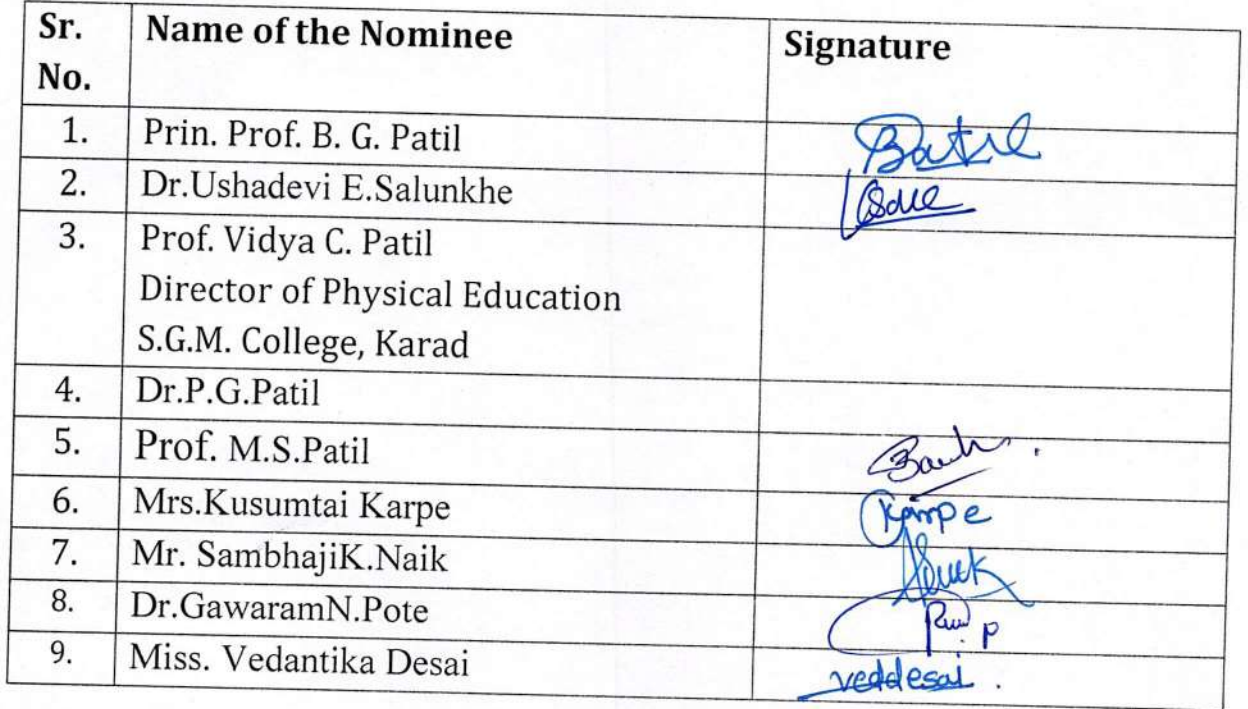 Sr. Name of the Nominee Signature
No.
1. Prin. Prof. B. G. Patil Batil
2. Dr.Ushadevi E.Salunkhe
3. Prof. Vidya C. Patil
Director of Physical Education
S.G.M. College, Karad
4. Dr.P.G.Patil
5. Prof. M.S.Patil
6. Mrs.Kusumtai Karpe Karpe
7. Mr. SambhajiK.Naik
8. Dr.GawaramN.Pote
9. Miss. Vedantika Desai veddesai .